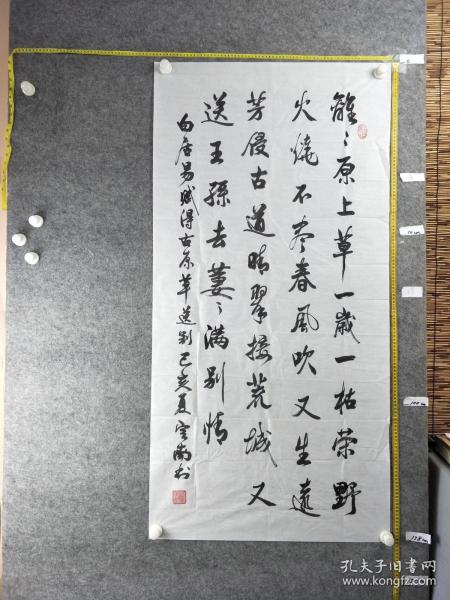 離〻原上草一歲一枯荣野
火燒不尽春風吹又生遠
芳侵古道晴翠接荒城又
送王孫去萋〻满别情
白居易赋得古原草送别己亥夏雲南书
孔夫子旧书网
www.kongfz.com